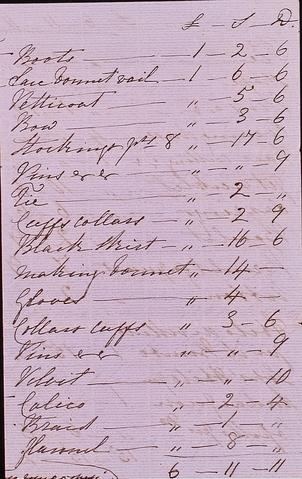 £ — S — D.
Boots — 1 — 2 — 6
Lace bonnet vail — 1 — 6 — 6
Petticoat — „ 5 — 6
Bow — „ 3 — 6
Stockings prs 8 „ — 17 — 6
Pins &c &c — „ — „ — 9
Tie — „ 2 — „
Cuffs collars — „ — 2 — 9
Black Skirt — „ — 16 — 6
making bonnet „ — 14 —
Gloves — „ — 4 —
Collars cuffs „ 3 — 6
Pins &c &c „ — „ — 9
Velvit — „ — „ — 10
Calico — „ — 2 — 4
Braid — „ — 1 — „
flannel — „ — 8 — „
6 — 11 — 11